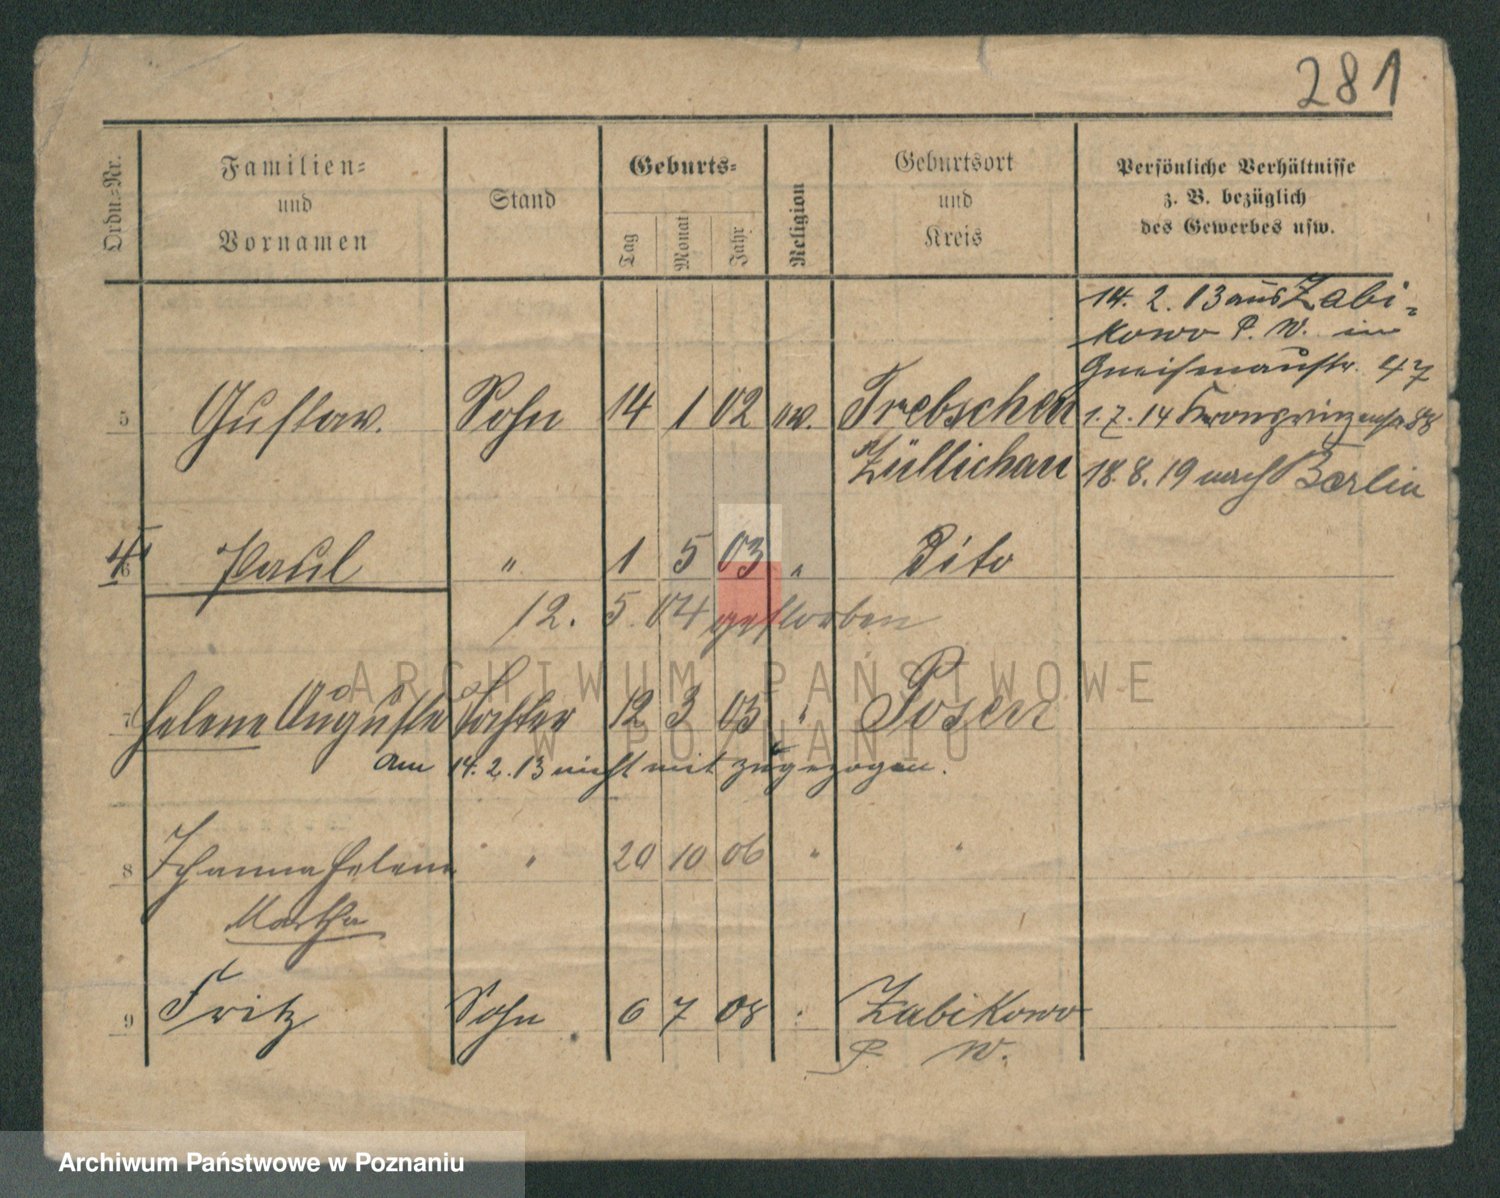 281
Ordn.-Nr.
Familien-
und
Vornamen
Stand
Geburts-
Tag
Monat
Jahr
Religion
Geburtsort
und
Kreis
Persönliche Verhältnisse
z. B. bezüglich
des Gewerbes usw.
14. 2. 13 aus Zabi-
kowo P. W. in
Gneisenaustr. 47
5 Gustav. Sohn 14 1 02 Trebschen 1. 7. 14 Kronprinzenstr 88
Züllichau 18. 8. 19 nach Berlin
6 Paul " 1 5 03 " Dito
12. 5. 04 gestorben
7 Helene Auguste Tochter 12 3 05 " Posen
am 14. 2. 13 nicht mit zugezogen.
8 Johanna Helene " 20 10 06 " "
Martha
9 Fritz Sohn 6 7 08 " Zabikowo
P. W.
ARCHIWUM PAŃSTWOWE
W POZNANIU
Archiwum Państwowe w Poznaniu